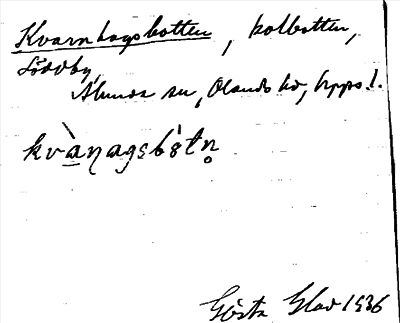 Kvarnhagsbotten, kolbotten,
Söddby,
Alunda sn, Olands hd, Upps. l.
kvànagsbòtn̥
Gösta Glad 1936